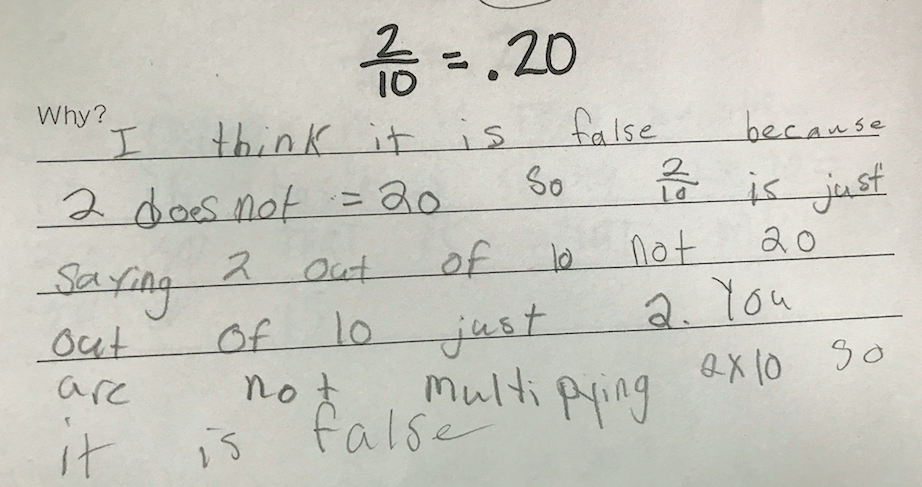 2/10 = .20
Why?
I think it is false because
2 does not = 20 So 2/10 is just
Saying 2 out of 10 not 20
out of 10 just 2. You
are not multipying 2x10 so
it is false